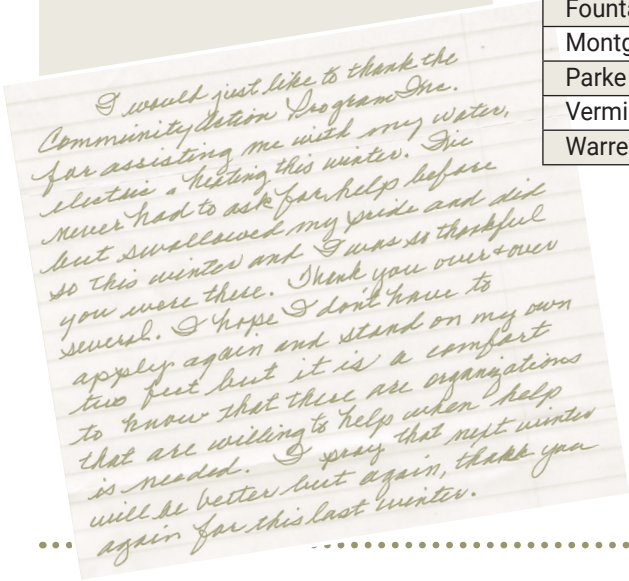 Founta
Montg
Parke
Vermi
Warre
I would just like to thank the
Community Action Program Inc.
for assisting me with my water,
electric & heating this winter. I've
never had to ask for help before
but swallowed my pride and did
so this winter and I was so thankful
you were there. Thank you over & over
several. I hope I don't have to
apply again and stand on my own
two feet but it is a comfort
to know that there are organizations
that are willing to help when help
is needed. I pray that next winter
will be better but again, thank you
again for this last winter.